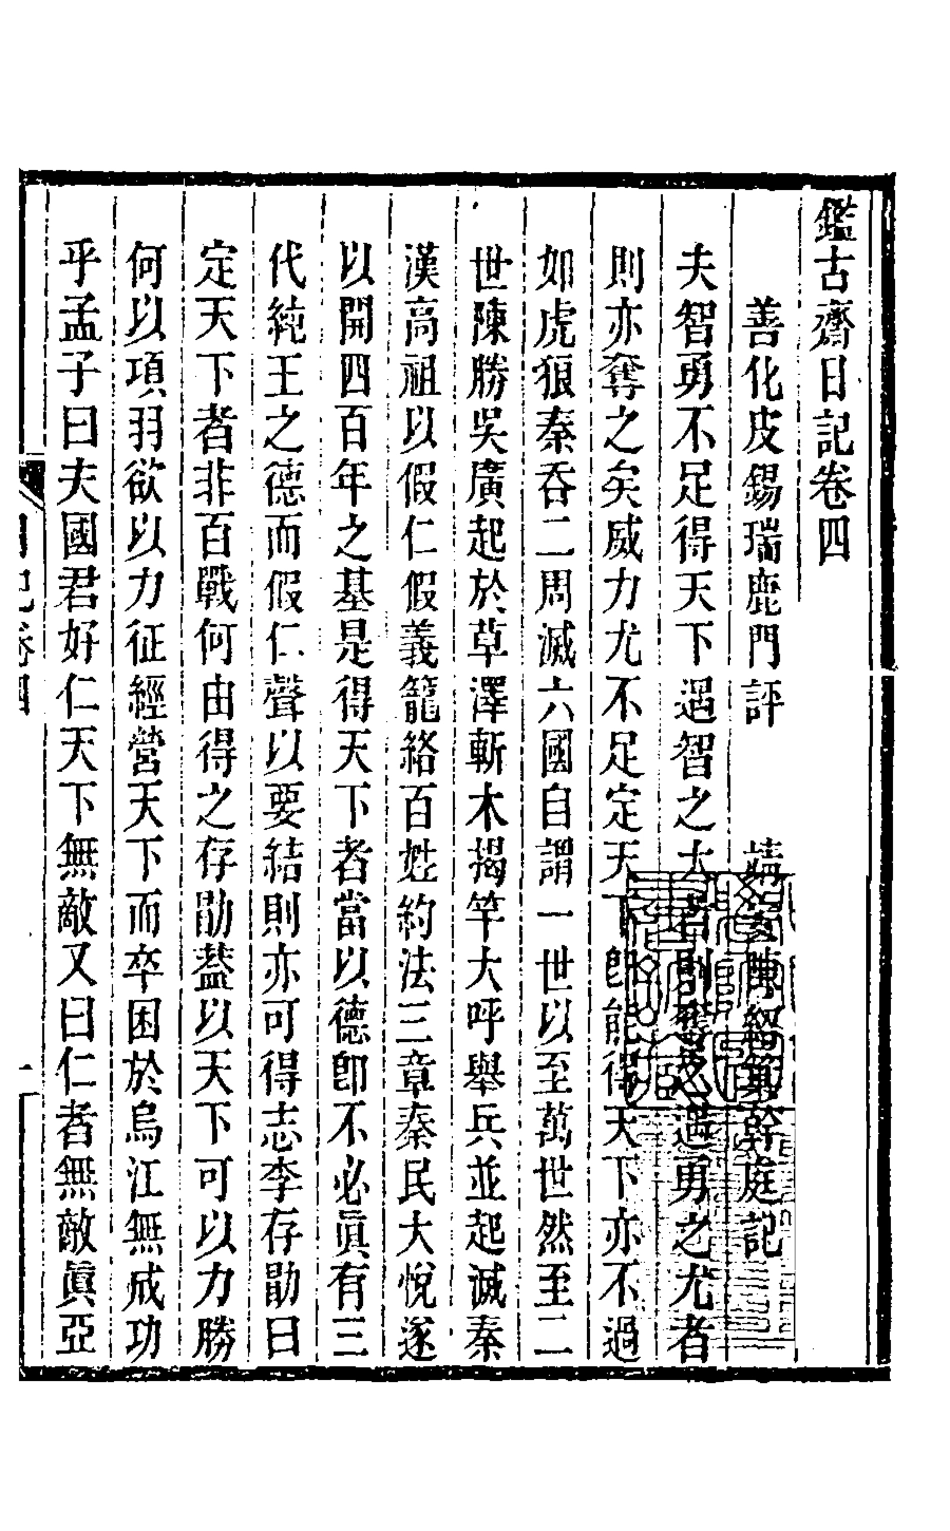 鑑古齋日記卷四
善化皮錫瑞鹿門評　靖陳紹箕幹庭記
夫智勇不足得天下遇智之大者則奪之遇勇之尤者
則亦奪之矣威力尤不足定天下卽能得天下亦不過
如虎狼秦吞二周滅六國自謂一世以至萬世然至二
世陳勝吳廣起於草澤斬木揭竿大呼舉兵並起滅秦
漢高祖以假仁假義籠絡百姓約法三章秦民大悅遂
以開四百年之基是得天下者當以德卽不必眞有三
代純王之德而假仁聲以要結則亦可得志李存勖曰
定天下者非百戰何由得之存勖蓋以天下可以力勝
何以項羽欲以力征經營天下而卒困於烏江無成功
乎孟子曰夫國君好仁天下無敵又曰仁者無敵眞亞
日記卷四
一